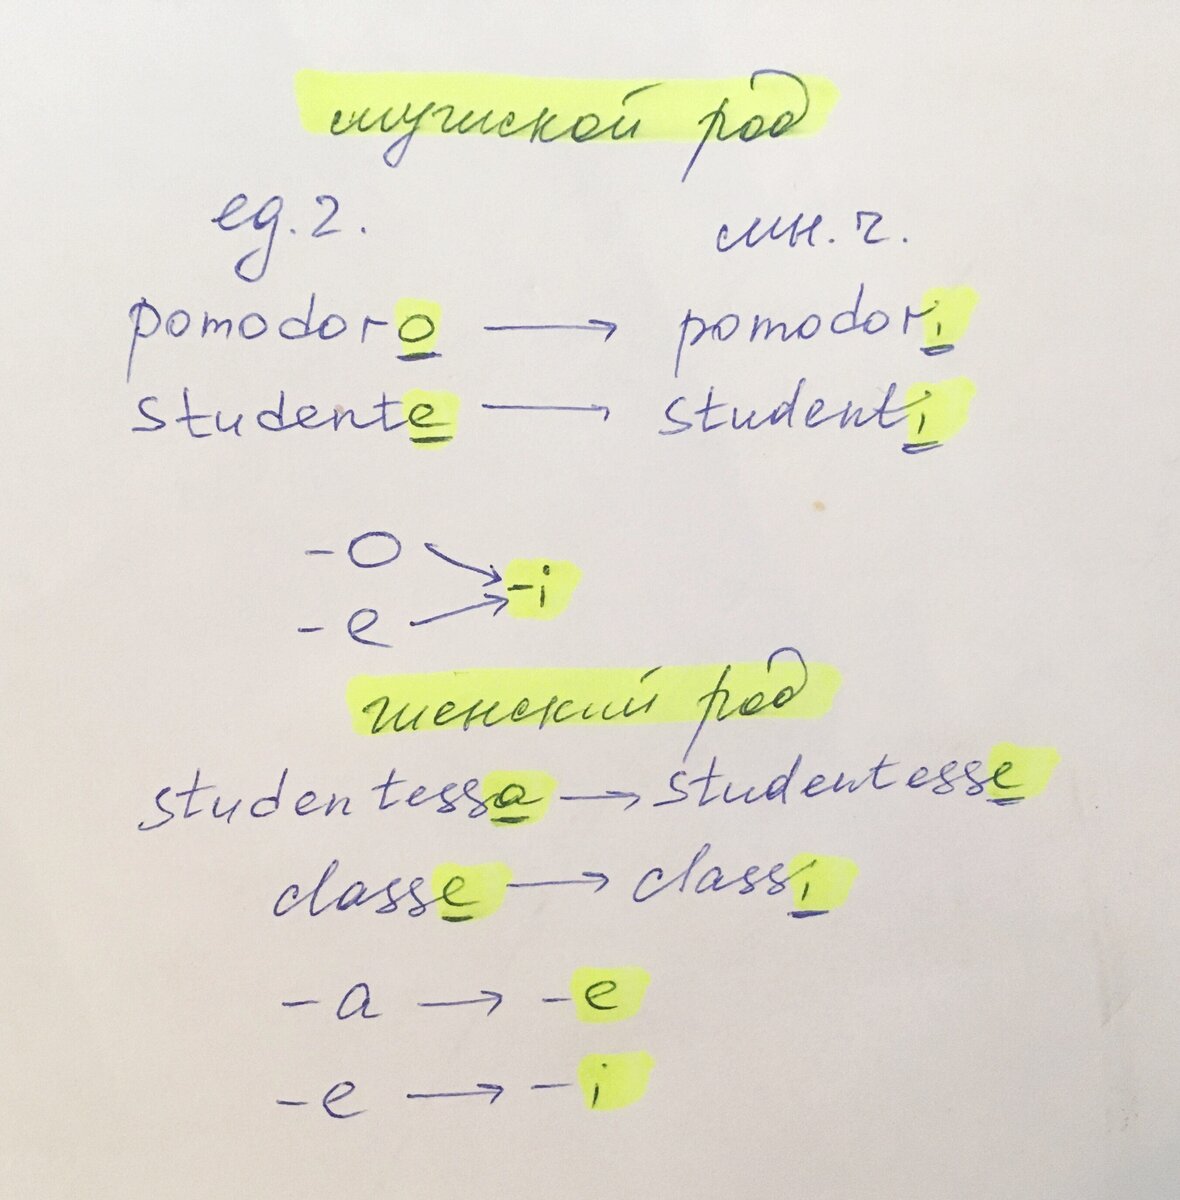 мужской род
ед. ч. мн. ч.
pomodoro → pomodori
studente → studenti
-o
-i
-e
женский род
studentessa → studentesse
classe → classi
-a → -e
-e → -i